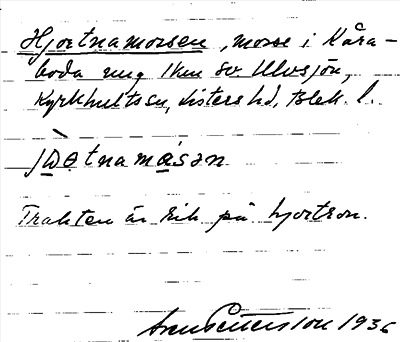 Hjortnamossen, mosse i Kåra-
boda ung 1 km sv Ulvsjön,
Kyrkhultssn, Listers hd, Blek. l.
Trakten är rik på hjortron.
1936